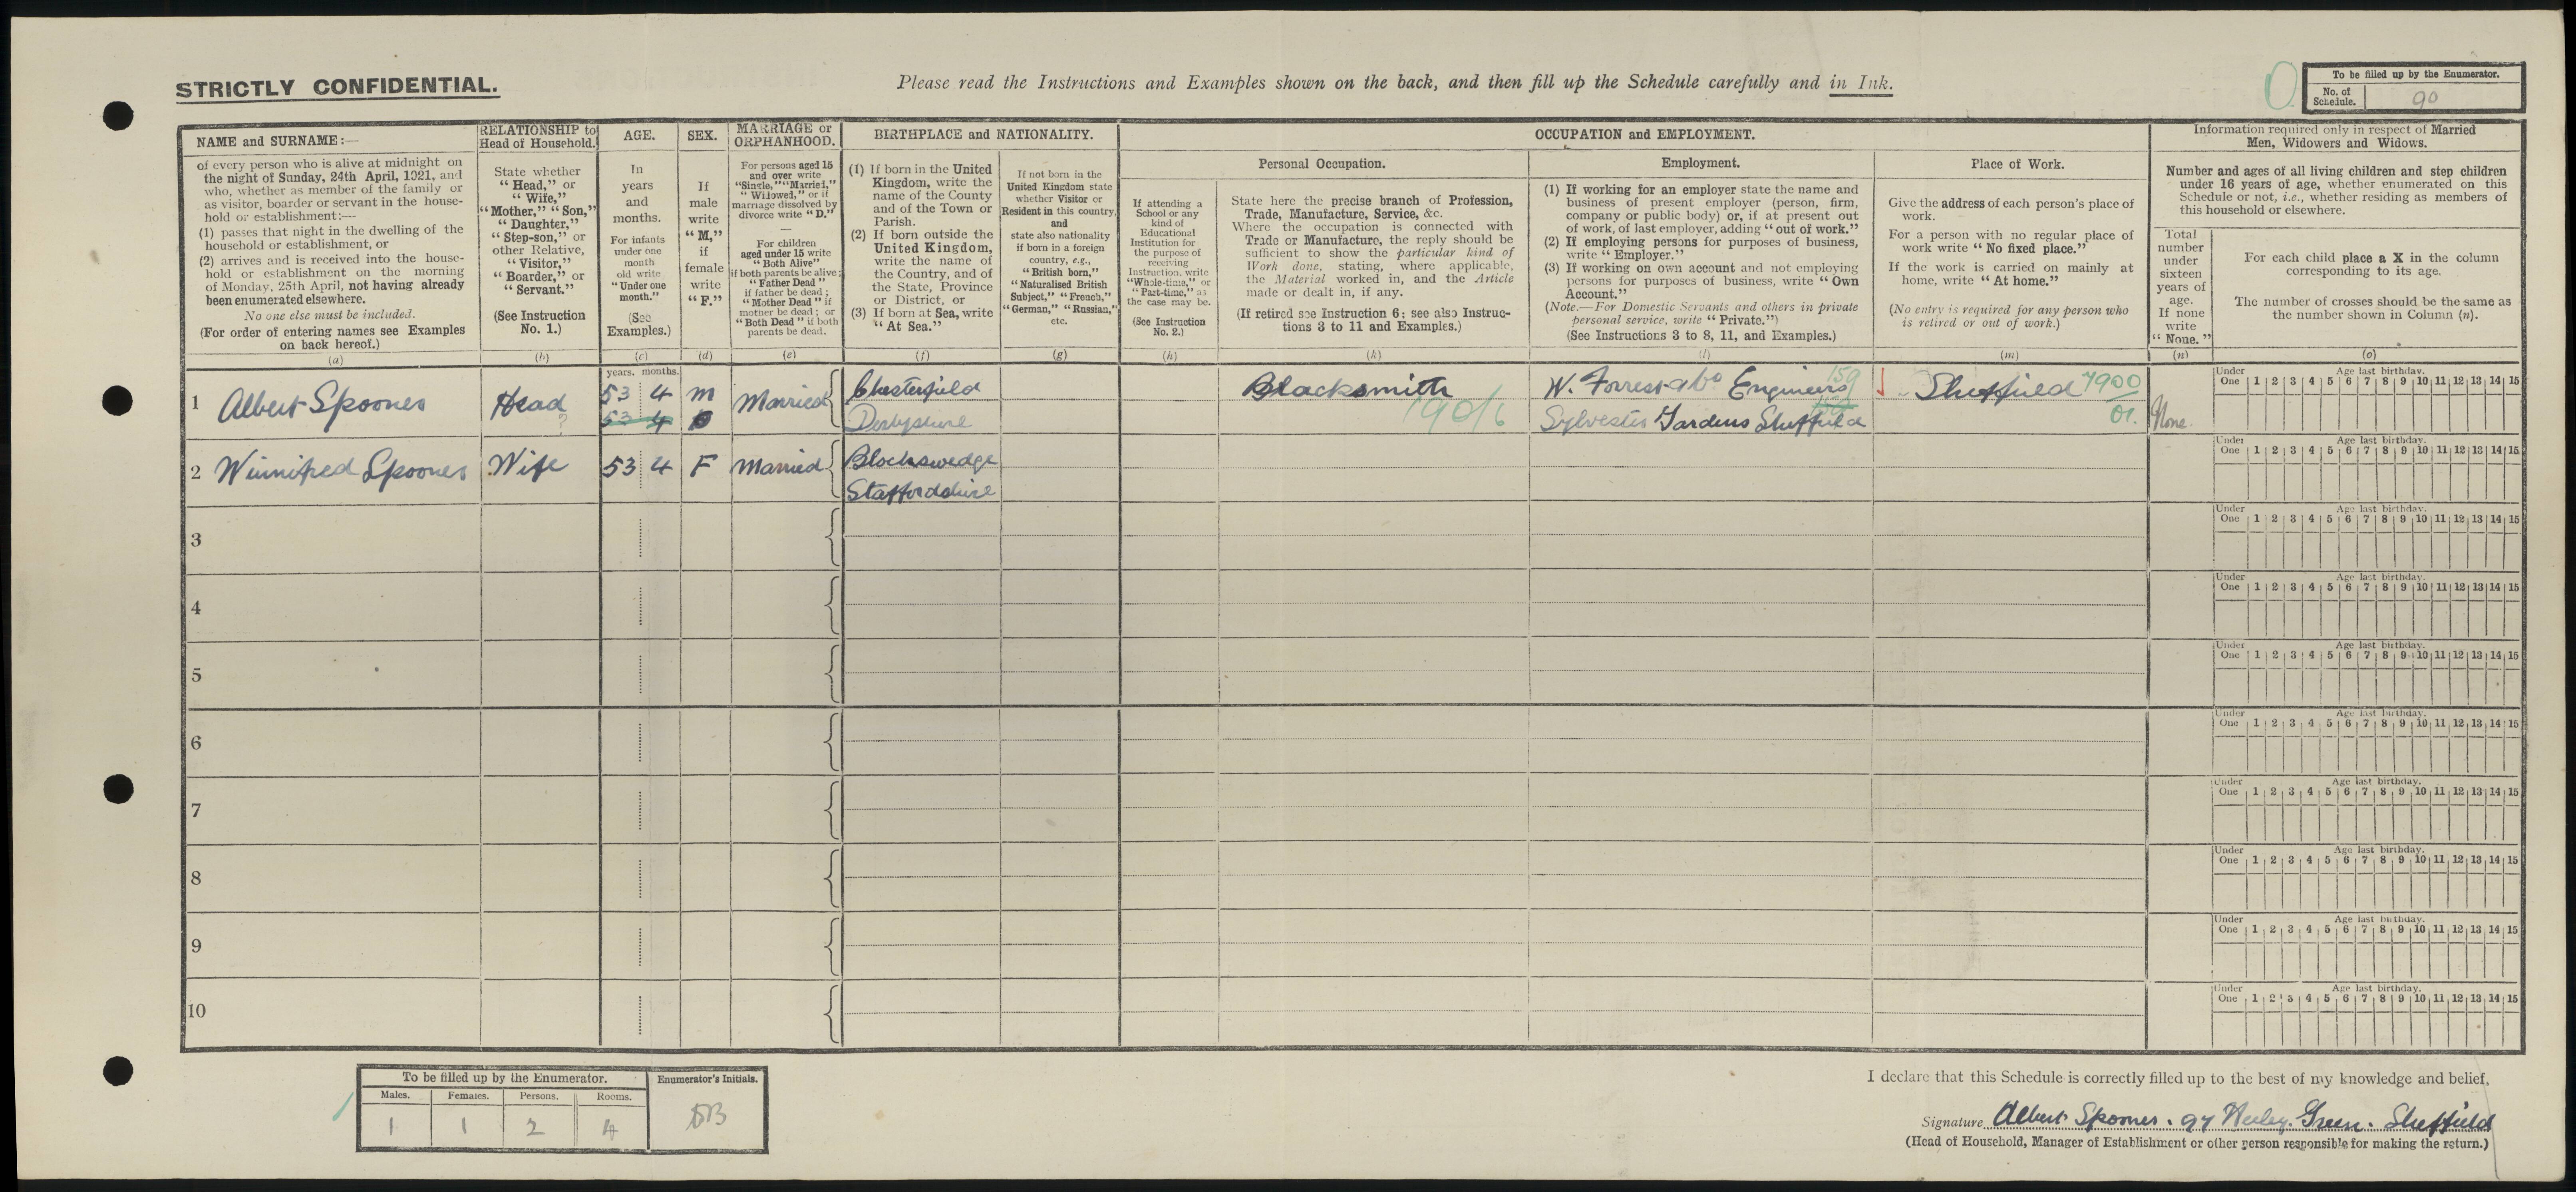 STRICTLY CONFIDENTIAL.
Please read the Instructions and Examples shown on the back, and then fill up the Schedule carefully and in Ink.
To be filled up by the Enumerator.
No. of Schedule. 90
NAME and SURNAME:—
of every person who is alive at midnight on
the night of Sunday, 24th April, 1921, and
who, whether as member of the family or
as visitor, boarder or servant in the house-
hold or establishment:—
(1) passes that night in the dwelling of the
household or establishment, or
(2) arrives and is received into the house-
hold or establishment on the morning
of Monday, 25th April, not having already
been enumerated elsewhere.
No one else must be included.
(For order of entering names see Examples
on back hereof.)
(a)
RELATIONSHIP to
Head of Household.
State whether
“Head,” or
“Wife,”
“Mother,” “Son,”
“Daughter,”
“Step-son,” or
other Relative,
“Visitor,”
“Boarder,” or
“Servant.”
(See Instruction
No. 1.)
(b)
AGE.
In
years
and
months.
For infants
under one
month
old write
“Under one
month.”
(See
Examples.)
(c)
SEX.
If
male
write
“M,”
if
female
write
“F.”
(d)
MARRIAGE or
ORPHANHOOD.
For persons aged 15
and over write
“Single,” “Married,”
“Widowed,” or if
marriage dissolved by
divorce write “D.”
—
For children
aged under 15 write
“Both Alive”
if both parents be alive;
“Father Dead”
if father be dead;
“Mother Dead” if
mother be dead; or
“Both Dead” if both
parents be dead.
(e)
BIRTHPLACE and NATIONALITY.
(1) If born in the United
Kingdom, write the
name of the County
and of the Town or
Parish.
(2) If born outside the
United Kingdom,
write the name of
the Country, and of
the State, Province
or District, or
(3) If born at Sea, write
“At Sea.”
(f)
If not born in the
United Kingdom state
whether Visitor or
Resident in this country,
and
state also nationality
if born in a foreign
country, e.g.,
“British born,”
“Naturalised British
Subject,” “French,”
“German,” “Russian,”
etc.
(g)
OCCUPATION and EMPLOYMENT.
If attending a
School or any
kind of
Educational
Institution for
the purpose of
receiving
Instruction, write
“Whole-time,” or
“Part-time,” as
the case may be.
(See Instruction
No. 2.)
(h)
Personal Occupation.
State here the precise branch of Profession,
Trade, Manufacture, Service, &c.
Where the occupation is connected with
Trade or Manufacture, the reply should be
sufficient to show the particular kind of
Work done, stating, where applicable,
the Material worked in, and the Article
made or dealt in, if any.
(If retired see Instruction 6: see also Instruc-
tions 3 to 11 and Examples.)
(k)
Employment.
(1) If working for an employer state the name and
business of present employer (person, firm,
company or public body) or, if at present out
of work, of last employer, adding “out of work.”
(2) If employing persons for purposes of business,
write “Employer.”
(3) If working on own account and not employing
persons for purposes of business, write “Own
Account.”
(Note.—For Domestic Servants and others in private
personal service, write “Private.”)
(See Instructions 3 to 8, 11, and Examples.)
(l)
Place of Work.
Give the address of each person's place of
work.
For a person with no regular place of
work write “No fixed place.”
If the work is carried on mainly at
home, write “At home.”
(No entry is required for any person who
is retired or out of work.)
(m)
Information required only in respect of Married
Men, Widowers and Widows.
Number and ages of all living children and step children
under 16 years of age, whether enumerated on this
Schedule or not, i.e., whether residing as members of
this household or elsewhere.
Total
number
under
sixteen
years of
age.
If none
write
“None.”
(n)
For each child place a X in the column
corresponding to its age.
The number of crosses should be the same as
the number shown in Column (n).
(o)
years. months.
1 Albert Spooner Head 53 4 M Married Chesterfield Blacksmith W. Forrest Engineers 159 Sheffield 7900
? 53 4 Derbyshire 190/6 Sylvester Gardens Sheffield 01. None.
Under One Age last birthday. 1 2 3 4 5 6 7 8 9 10 11 12 13 14 15
2 Winnifred Spooner Wife 53 4 F Married
Staffordshire
Under One Age last birthday. 1 2 3 4 5 6 7 8 9 10 11 12 13 14 15
3
Under One Age last birthday. 1 2 3 4 5 6 7 8 9 10 11 12 13 14 15
4
Under One Age last birthday. 1 2 3 4 5 6 7 8 9 10 11 12 13 14 15
5
Under One Age last birthday. 1 2 3 4 5 6 7 8 9 10 11 12 13 14 15
6
Under One Age last birthday. 1 2 3 4 5 6 7 8 9 10 11 12 13 14 15
7
Under One Age last birthday. 1 2 3 4 5 6 7 8 9 10 11 12 13 14 15
8
Under One Age last birthday. 1 2 3 4 5 6 7 8 9 10 11 12 13 14 15
9
Under One Age last birthday. 1 2 3 4 5 6 7 8 9 10 11 12 13 14 15
10
Under One Age last birthday. 1 2 3 4 5 6 7 8 9 10 11 12 13 14 15
To be filled up by the Enumerator.
Enumerator's Initials.
Males. Females. Persons. Rooms.
1 1 2 4
I declare that this Schedule is correctly filled up to the best of my knowledge and belief.
Signature Albert Spooner. 97 Heeley Green. Sheffield
(Head of Household, Manager of Establishment or other person responsible for making the return.)